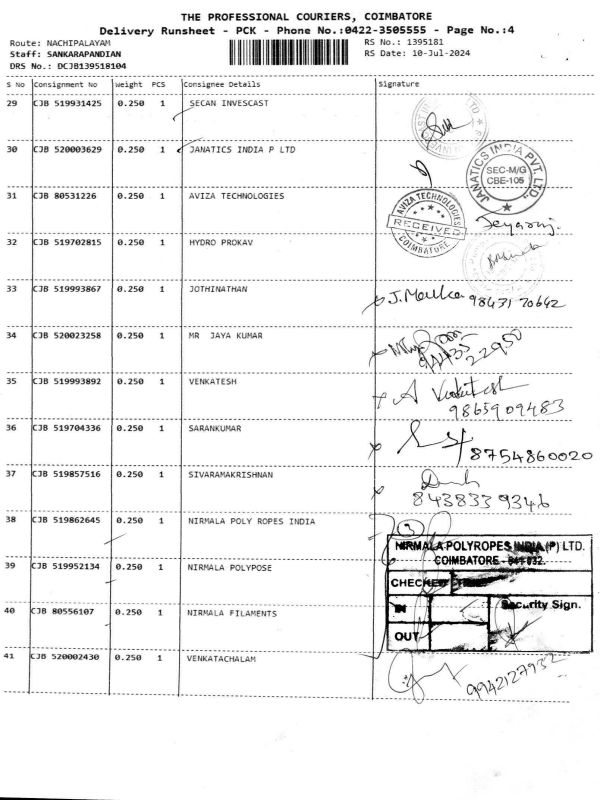 THE PROFESSIONAL COURIERS, COIMBATORE
Delivery Runsheet - PCK - Phone No.:0422-3505555 - Page No.:4
Route: NACHIPALAYAM RS No.: 1395181
Staff: SANKARAPANDIAN RS Date: 10-Jul-2024
DRS No.: DCJB139518104
S No Consignment No Weight PCS Consignee Details Signature
29 CJB 519931425 0.250 1 SECAN INVESCAST
30 CJB 520003629 0.250 1 JANATICS INDIA P LTD
JANATICS INDIA PVT. LTD.
SEC-M/G
CBE-105
31 CJB 80531226 0.250 1 AVIZA TECHNOLOGIES
AVIZA TECHNOLOGIES
RECEIVED
COIMBATORE
32 CJB 519702815 0.250 1 HYDRO PROKAV
33 CJB 519993867 0.250 1 JOTHINATHAN
98431 70642
34 CJB 520023258 0.250 1 MR JAYA KUMAR
35 CJB 519993892 0.250 1 VENKATESH
A Venkatesh
9865909483
36 CJB 519704336 0.250 1 SARANKUMAR
8754860020
37 CJB 519857516 0.250 1 SIVARAMAKRISHNAN
8438339346
38 CJB 519862645 0.250 1 NIRMALA POLY ROPES INDIA
3
NIRMALA POLYROPES INDIA (P) LTD.
COIMBATORE - 641 032.
39 CJB 519952134 0.250 1 NIRMALA POLYPOSE
CHECKED
40 CJB 80556107 0.250 1 NIRMALA FILAMENTS
IN Security Sign.
OUT
41 CJB 520002430 0.250 1 VENKATACHALAM
9942127932